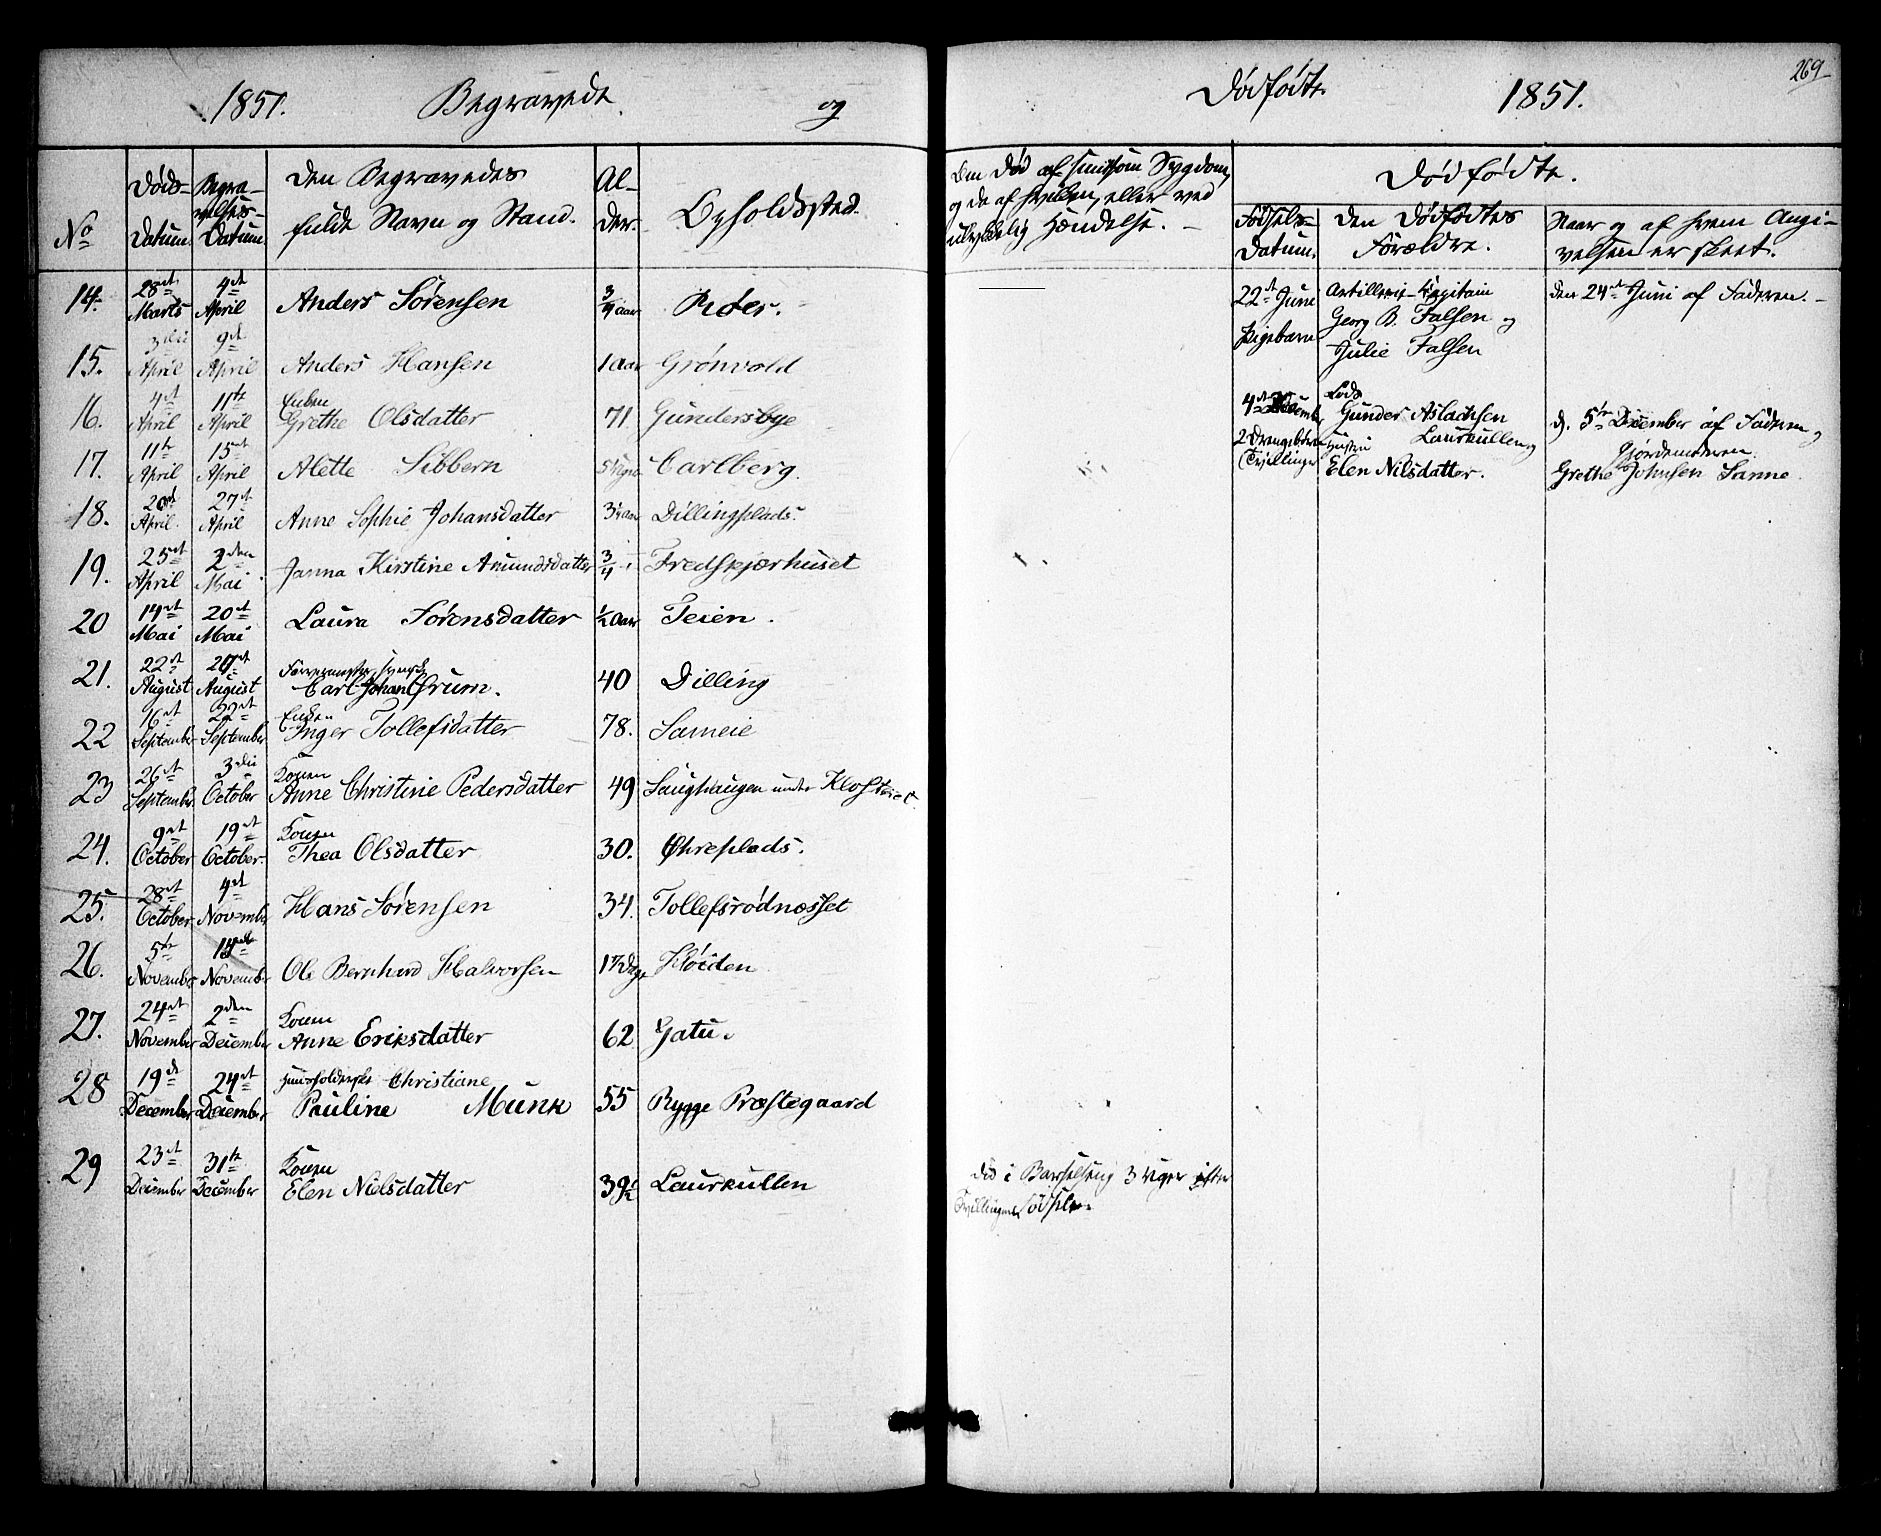 1851. Begravede og
Dødfødte. 1851.
269
No
Døds-
Datum.
Begra-
velses-
Datum.
Den Begravedes
fulde Navn og Stand.
Al-
der.
Opholdssted.
Om Død af smitsom Sygdom,
og da af hvilken, eller ved
ulykkelig Hændelse. -
Dødfødte.
Fødsels-
Datum.
Den Dødfødtes
Forældre.
Naar og af hvem Angi-
velsen er skeet.
14. 28de Marts 4de April Anders Sørensen 3/4 aar Roer.
15. 3die April 9de April Anders Hansen 1 aar Grønvold
16. 4de April 11te April Enken Grethe Olsdatter 71 Gundersbye
17. 11te April 15de April Alette Sibbern Carlberg.
18. 20de April 27de April Anne Sophie Johansdatter Dillingplads.
19. 25de April 2den Mai Janna Kirstine Amundsdatter 3/4 Fredskjærhuset
20 14de Mai 20de Mai Laura Sørensdatter 1/2 aar Teien.
21. 22de August August Carl Johan 40 Dilling
22 16de September 22de September Enken Inger Tollefsdatter 78. Sameie
23 26de September 3die October Konen Anne Christine Pedersdatter 49 Laughaugen under Klosteret.
24. 9de October 19de October. Konen Thea Olsdatter 30. Øhreplads.
25. 28de October 4de November Hans Sørensen 34. Tollefsrødnæsset
26. 5te November November Ole Bernhard Halvorsen Høiden
27. 24de November 2den December Konen Anne Eriksdatter 62 Gatu.
28 19de December 24de December Huusholderske Christiane
Pauline Munk 55 Rygge Præstegaard
29 23de December 31te December Konen Elen Nielsdatter 39 1/2 Laurkullen
Død i Barselseng 3 Uger efter
Tvillingernes Fødsel.
22de Juni
Pigebarn
Artillerie-Capitain
Georg B. Falsen og
Julie Falsen
den 24de Juni af Faderen. -
4de December
2 Drengebørn
(Tvillinger
Lods
Gunder Aslaksen
Laurkullen og
Hustru
Elen Nilsdatter.
d. 5te December af Faderen og
Gjordemoderen
Grethe Johnsen Sanne.